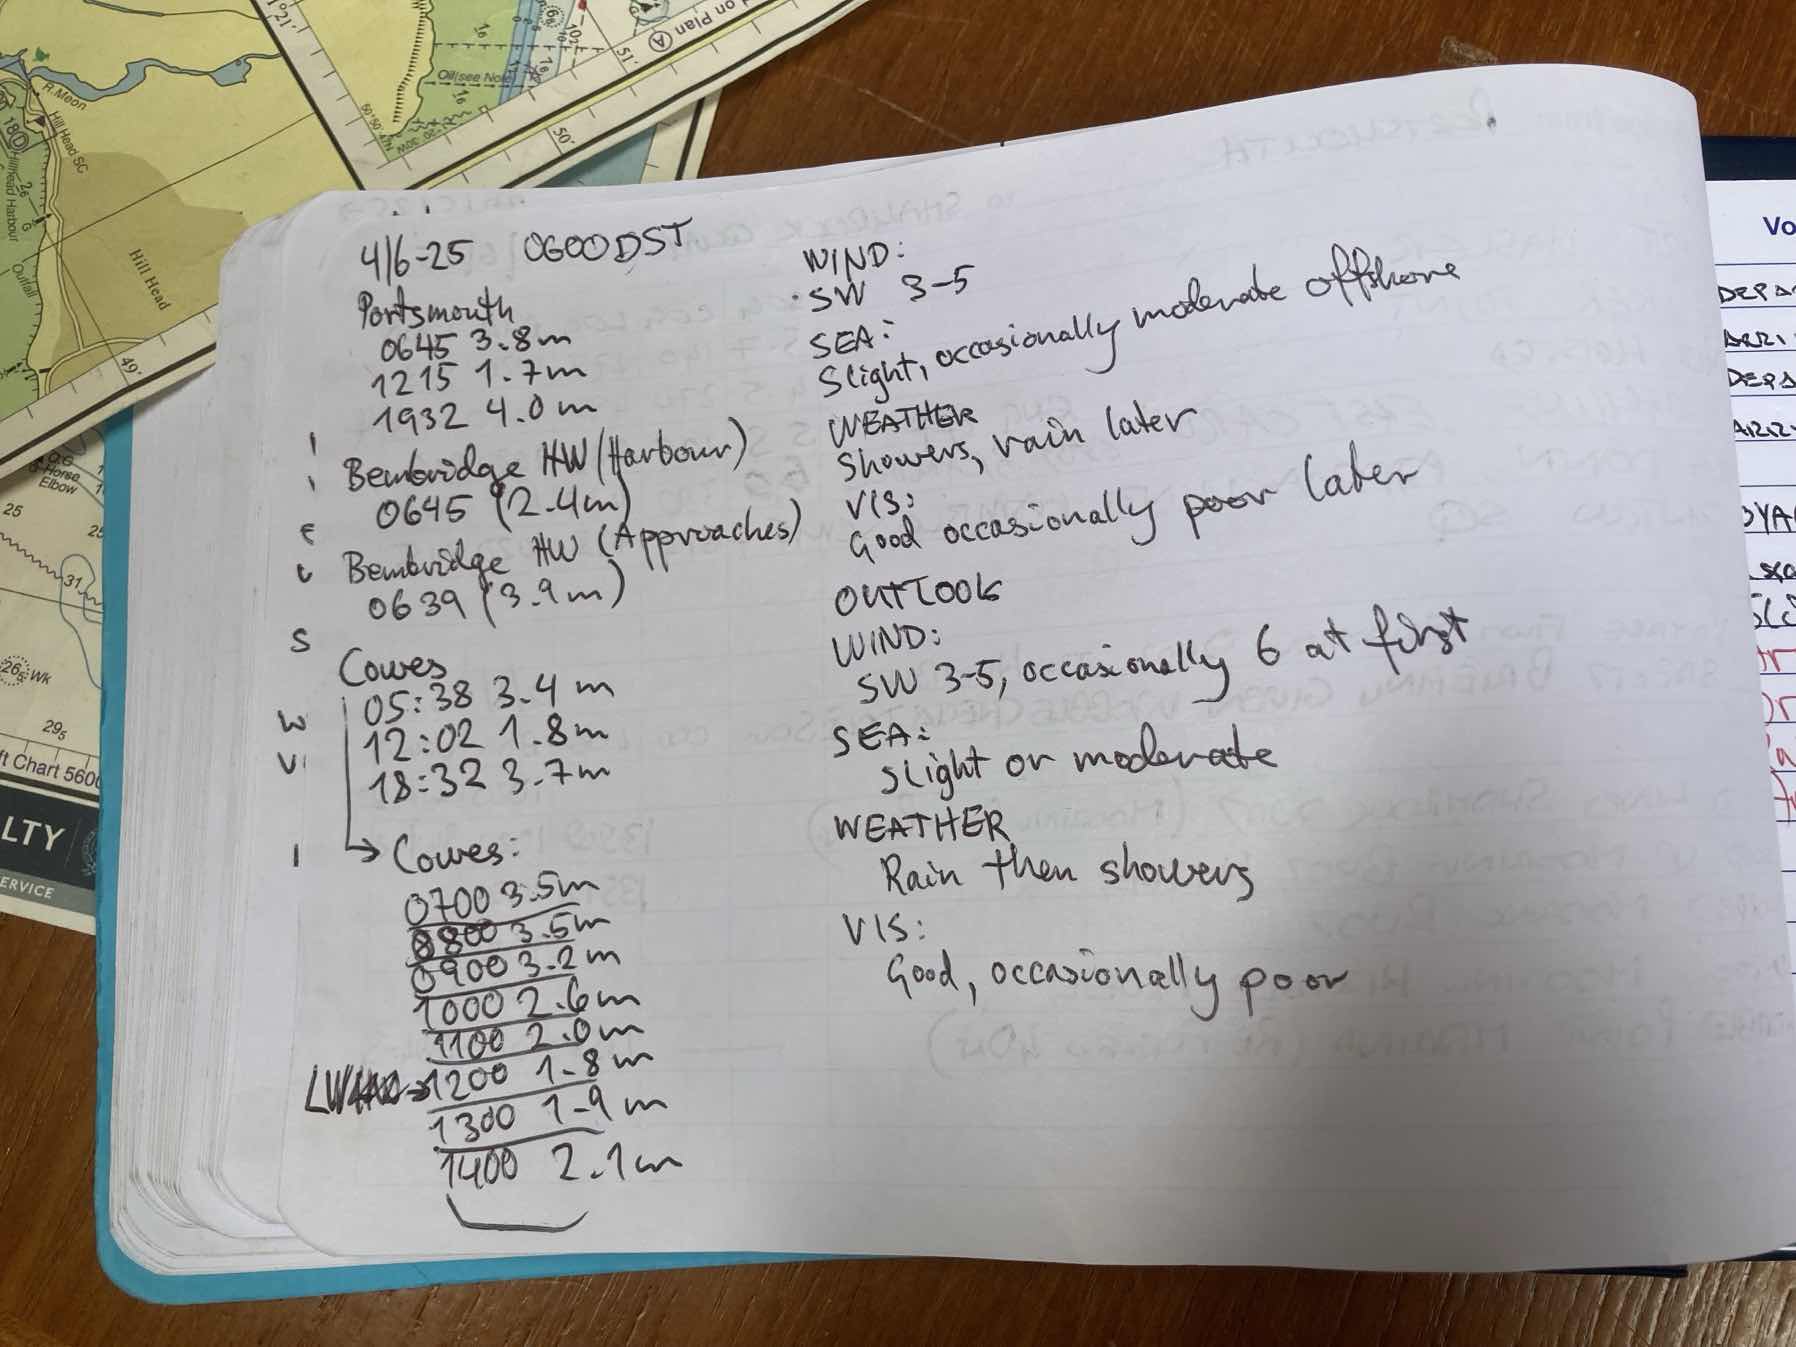 4/6-25 0600DST
Portsmouth
0645 3.8m
1215 1.7m
1932 4.0m
Bembridge HW (Harbour)
0645 (2.4m)
Bembridge HW (Approaches)
0639 (3.9m)
Cowes
05:38 3.4m
12:02 1.8m
18:32 3.7m
→ Cowes:
0700 3.5m
0800 3.5m
0900 3.2m
1000 2.6m
1100 2.0m
LW → 1200 1.8m
1300 1.9m
1400 2.1m
WIND:
SW 3-5
SEA:
Slight, occasionally moderate offshore
WEATHER
Showers, rain later
VIS:
Good occasionally poor later
OUTLOOK
WIND:
SW 3-5, occasionally 6 at first
SEA:
Slight or moderate
WEATHER
Rain then showers
VIS:
Good, occasionally poor
R. Meon
Hill Head SC
Hillhead Harbour
Outfall
Hill Head
Oil (see Note)
on Plan A
51'
50'
49'
Horse
Elbow
25
31
Wk
29₅
ft Chart 5600
LTY
ERVICE
Vo
DEPA
ARRI
DEPA
ARR
OYA